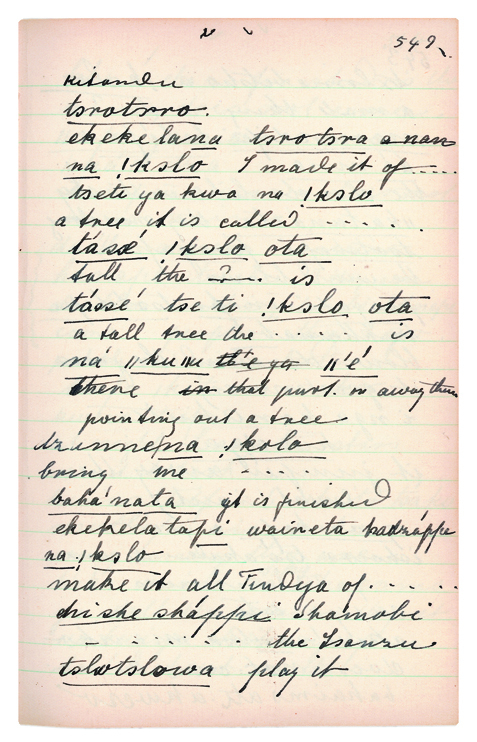 549
kitandu
tsrotsrro.
ekeke lana tsrotsra a nan
na !kslo I made it of ....
tseti ya kwa na !kslo
a tree it is called . . . .
tássé !kslo ota
tall the ..?.. is
tássé tse ti !kslo ota
a tall tree the . . . . is
ná is
there in that part. or away there
pointing out a tree
na !kolo
bring me . . . .
bahá'nata it is finished
ekekela tapi waineta
na !kslo
make it all of . . . .
shiske sháppi shamobi
. . . . . . the Isanzu
tslotslowa play it